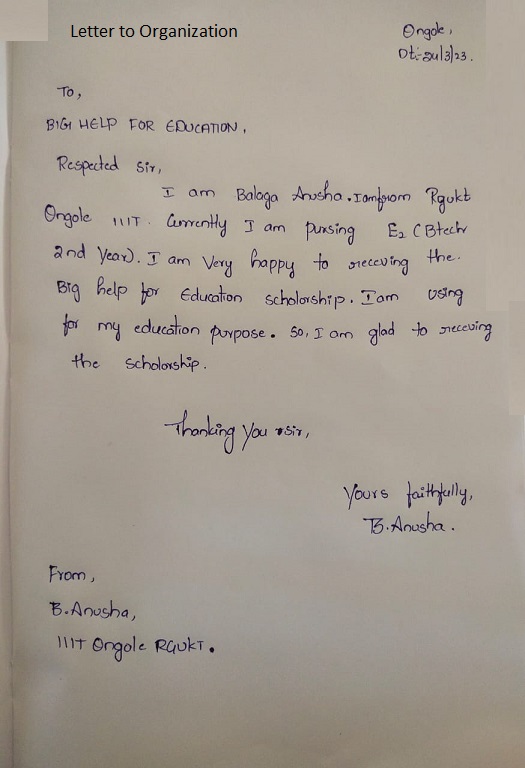 Letter to Organization
Ongole,
Dt:-24/3/23.
To,
BIG HELP FOR EDUCATION,
Respected Sir,
I am Balaga Anusha. Iamfrom Rgukt
Ongole IIIT. Currently I am pursing E2 (Btech
2nd Year). I am Very happy to receving the.
Big help for Education scholorship. Iam using
for my education purpose. So, I am glad to receving
the scholorship.
Thanking You sir,
Yours faithfully,
B.Anusha.
From,
B.Anusha,
IIIT Ongole RGUKT.